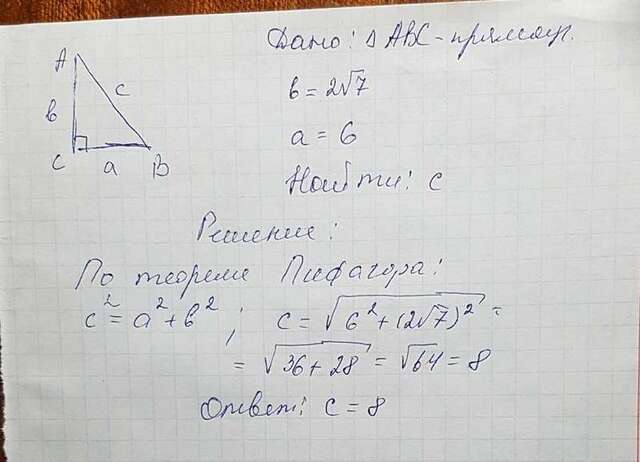 Дано: Δ ABC - прямоуг.
A
c
b
C
a
B
b = 2√7
a = 6
Найти: c
Решение:
По теореме Пифагора:
c² = a² + b² ; c = √(6² + (2√7)²) =
= √(36 + 28) = √64 = 8
Ответ: c = 8